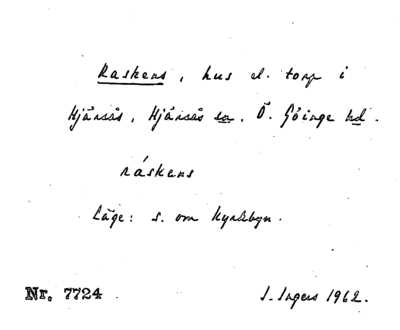 Raskens, hus el. torp i
Hjärsås, Hjärsås sn. Ö. Göinge hd.
ráskens
Läge: s. om kyrkbyn.
Nr. 7724 I. Ingers 1962.